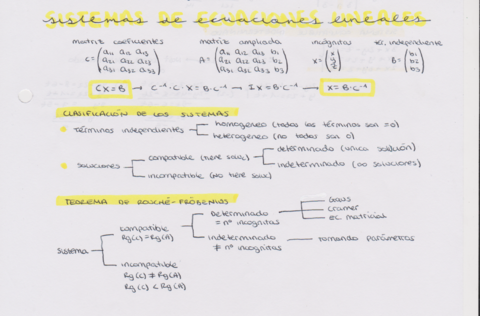 SISTEMAS DE ECUACIONES LINEALES
matriz coeficientes matriz ampliada incógnitas tér. independiente
C = (a11 a12 a13 / a21 a22 a23 / a31 a32 a33) A = (a11 a12 a13 b1 / a21 a22 a23 b2 / a31 a32 a33 b3) X = (x / y / z) B = (b1 / b2 / b3)
CX=B → C⁻¹·C·X=B·C⁻¹ → IX=B·C⁻¹ → X=B·C⁻¹
CLASIFICACIÓN DE LOS SISTEMAS
términos independientes
homogéneo (todos los términos son =0)
heterogéneo (no todos son 0)
soluciones
compatible (tiene soluc)
determinado (única solución)
indeterminado (∞ soluciones)
incompatible (no tiene soluc)
TEOREMA DE ROUCHÉ-FRÖBENIUS
sistema
compatible
Rg(C)=Rg(A)
Determinado
= nº incógnitas
Gauss
cramer
ec. matricial
indeterminado
≠ nº incógnitas
tomando parámetros
incompatible
Rg(C) ≠ Rg(A)
Rg(C) < Rg(A)